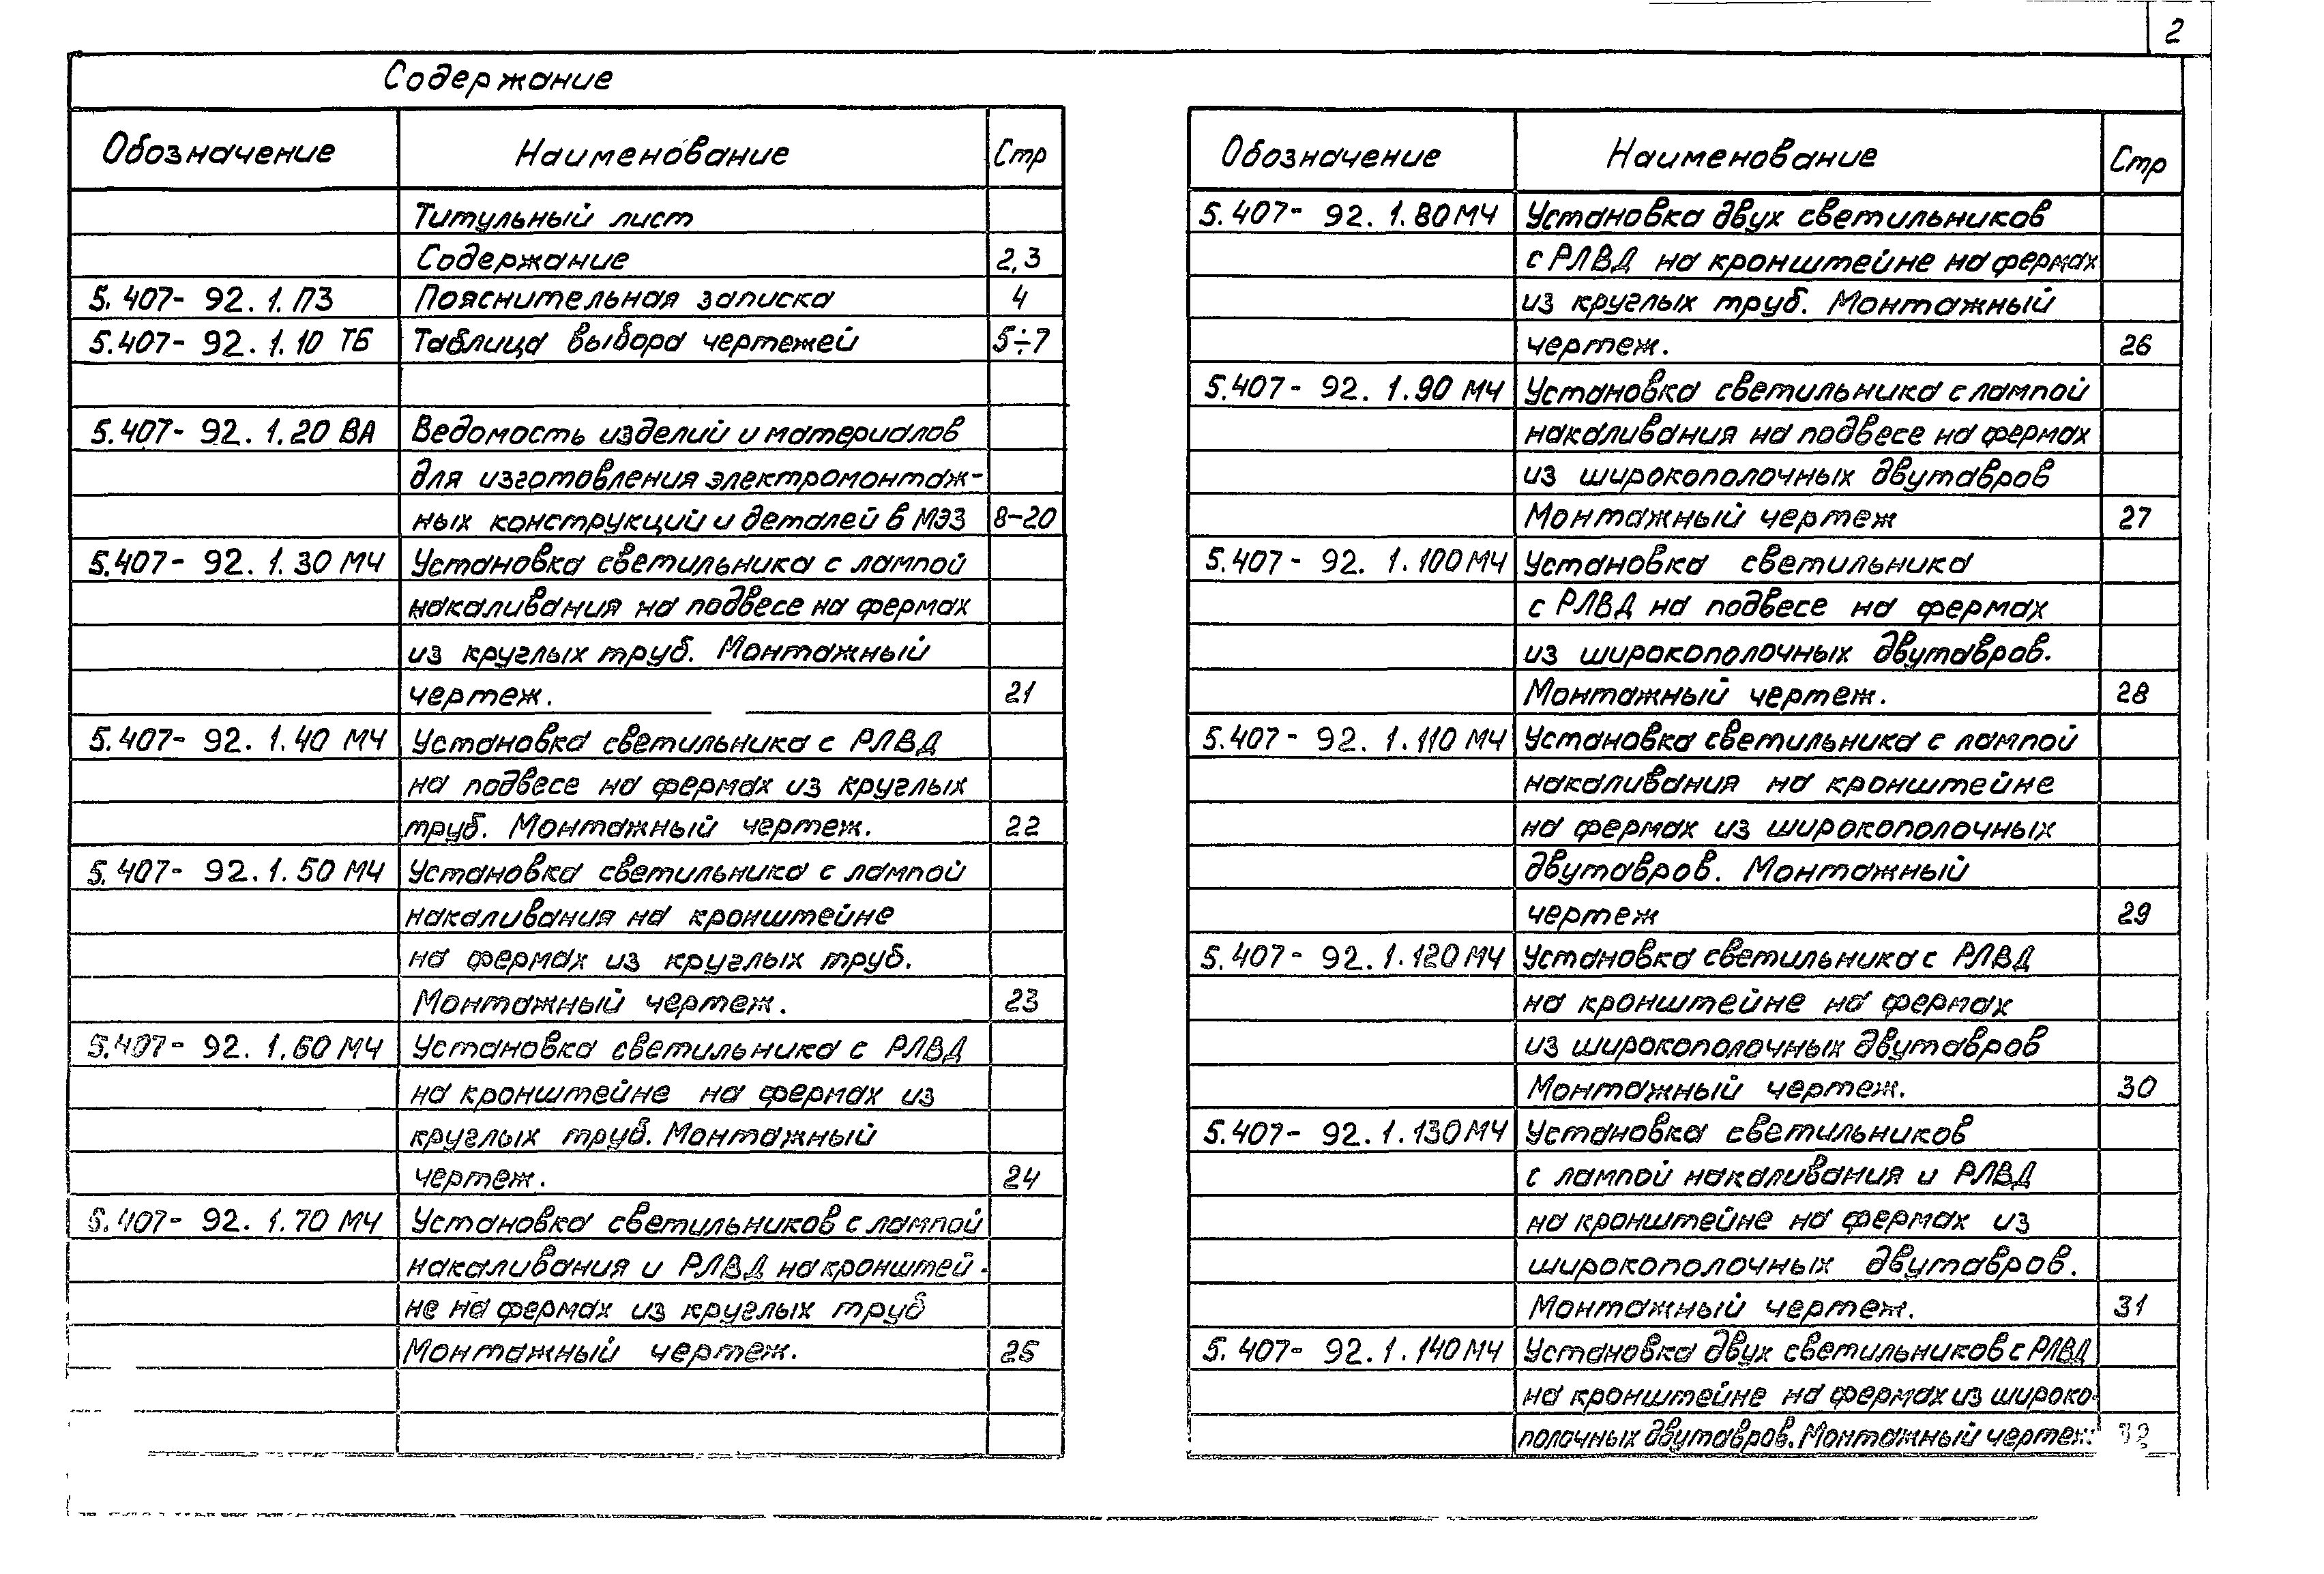 2
Содержание
Обозначение Наименование Стр
Титульный лист
Содержание 2,3
5.407-92.1.ПЗ Пояснительная записка 4
5.407-92.1.10 ТБ Таблица выбора чертежей 5÷7
5.407-92.1.20 ВА Ведомость изделий и материалов
для изготовления электромонтаж-
ных конструкций и деталей в МЭЗ 8-20
5.407-92.1.30 МЧ Установка светильника с лампой
накаливания на подвесе на фермах
из круглых труб. Монтажный
чертеж. 21
5.407-92.1.40 МЧ Установка светильника с РЛВД
на подвесе на фермах из круглых
труб. Монтажный чертеж. 22
5.407-92.1.50 МЧ Установка светильника с лампой
накаливания на кронштейне
на фермах из круглых труб.
Монтажный чертеж. 23
5.407-92.1.60 МЧ Установка светильника с РЛВД
на кронштейне на фермах из
круглых труб. Монтажный
чертеж. 24
5.407-92.1.70 МЧ Установка светильников с лампой
накаливания и РЛВД на кронштей-
не на фермах из круглых труб
Монтажный чертеж. 25
Обозначение Наименование Стр
5.407-92.1.80 МЧ Установка двух светильников
с РЛВД на кронштейне на фермах
из круглых труб. Монтажный
чертеж. 26
5.407-92.1.90 МЧ Установка светильника с лампой
накаливания на подвесе на фермах
из широкополочных двутавров
Монтажный чертеж 27
5.407-92.1.100 МЧ Установка светильника
с РЛВД на подвесе на фермах
из широкополочных двутавров.
Монтажный чертеж. 28
5.407-92.1.110 МЧ Установка светильника с лампой
накаливания на кронштейне
на фермах из широкополочных
двутавров. Монтажный
чертеж 29
5.407-92.1.120 МЧ Установка светильника с РЛВД
на кронштейне на фермах
из широкополочных двутавров
Монтажный чертеж. 30
5.407-92.1.130 МЧ Установка светильников
с лампой накаливания и РЛВД
на кронштейне на фермах из
широкополочных двутавров.
Монтажный чертеж. 31
5.407-92.1.140 МЧ Установка двух светильников с РЛВД
на кронштейне на фермах из широко-
полочных двутавров. Монтажный чертеж 32